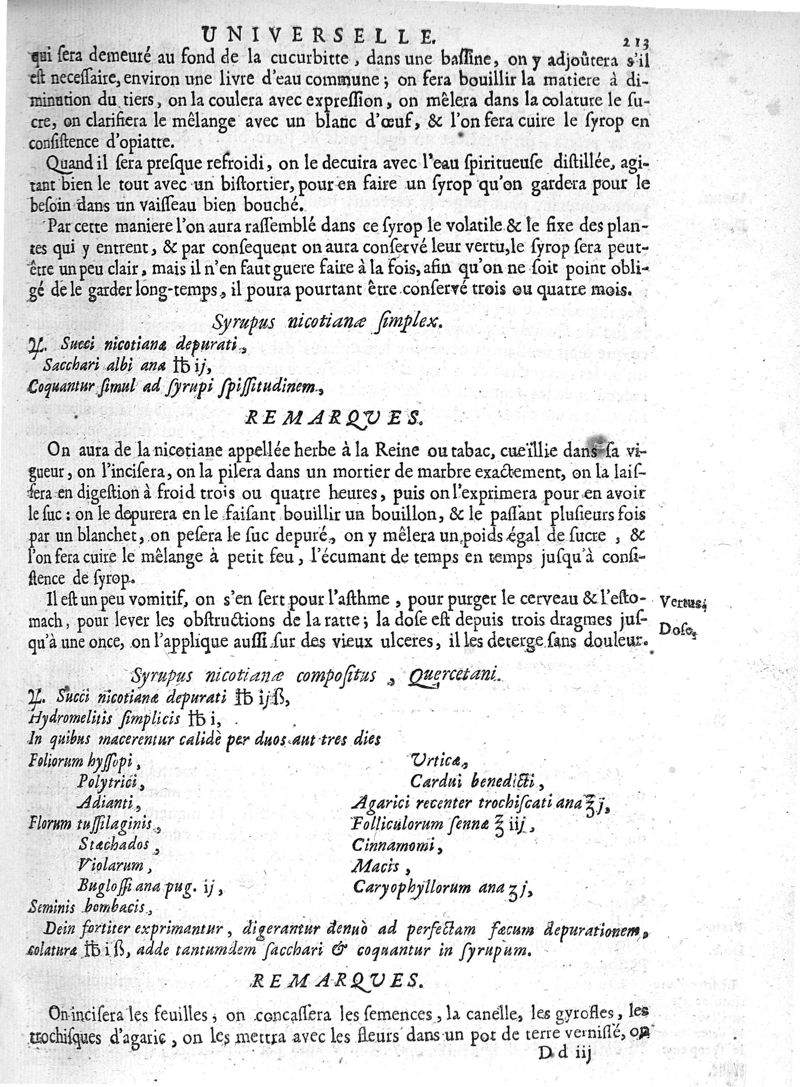 UNIVERSELLE. 213
qui ſera demeuré au fond de la cucurbitte, dans une baſſine, on y adjoûtera s'il
eſt neceſſaire, environ une livre d'eau commune; on fera bouillir la matiere à di-
minution du tiers, on la coulera avec expreſſion, on mêlera dans la colature le ſu-
cre, on clarifiera le mêlange avec un blanc d'œuf, & l'on fera cuire le ſyrop en
conſiſtence d'opiatte.
Quand il ſera preſque refroidi, on le decuira avec l'eau ſpiritueuſe diſtillée, agi-
tant bien le tout avec un biſtortier, pour en faire un ſyrop qu'on gardera pour le
beſoin dans un vaiſſeau bien bouché.
Par cette maniere l'on aura raſſemblé dans ce ſyrop le volatile & le fixe des plan-
tes qui y entrent, & par conſequent on aura conſervé leur vertu, le ſyrop ſera peut-
être un peu clair, mais il n'en faut guere faire à la fois, afin qu'on ne ſoit point obli-
gé de le garder long-temps, il poura pourtant être conſervé trois ou quatre mois.
Syrupus nicotianæ ſimplex.
♃. Succi nicotianæ depurati,
Sacchari albi ana ℔ ij,
Coquantur ſimul ad ſyrupi ſpiſſitudinem.
REMARQUES.
On aura de la nicotiane appellée herbe à la Reine ou tabac, cueïllie dans ſa vi-
gueur, on l'inciſera, on la pilera dans un mortier de marbre exactement, on la laiſ-
ſera en digeſtion à froid trois ou quatre heures, puis on l'exprimera pour en avoir
le ſuc: on le depurera en le faiſant bouillir un bouillon, & le paſſant pluſieurs fois
par un blanchet, on peſera le ſuc depuré, on y mêlera un poids égal de ſucre, &
l'on fera cuire le mêlange à petit feu, l'écumant de temps en temps juſqu'à conſi-
ſtence de ſyrop.
Il eſt un peu vomitif, on s'en ſert pour l'aſthme, pour purger le cerveau & l'eſto-
mach, pour lever les obſtructions de la ratte; la doſe eſt depuis trois dragmes juſ-
qu'à une once, on l'applique auſſi ſur des vieux ulceres, il les deterge ſans douleur.
Vertus.
Doſe.
Syrupus nicotianæ compoſitus, Quercetani.
♃. Succi nicotianæ depurati ℔ ijß,
Hydromelitis ſimplicis ℔ i,
In quibus macerentur calidè per duos aut tres dies
Foliorum hyſſopi,
Polytrici,
Adianti,
Florum tuſſilaginis,
Stæchados,
Violarum,
Bugloſſi ana pug. ij,
Seminis bombacis,
Urticæ,
Cardui benedicti,
Agarici recenter trochiſcati ana ℥j,
Folliculorum ſennæ ℥ iij,
Cinnamomi,
Macis,
Caryophyllorum ana ʒj,
Dein fortiter exprimantur, digerantur denuò ad perfectam fæcum depurationem,
colaturæ ℔ iß, adde tantumdem ſacchari & coquantur in ſyrupum.
REMARQUES.
On inciſera les feuilles, on concaſſera les ſemences, la canelle, les gyrofles, les
trochiſques d'agaric, on les mettra avec les fleurs dans un pot de terre verniſſé, on
D d iij